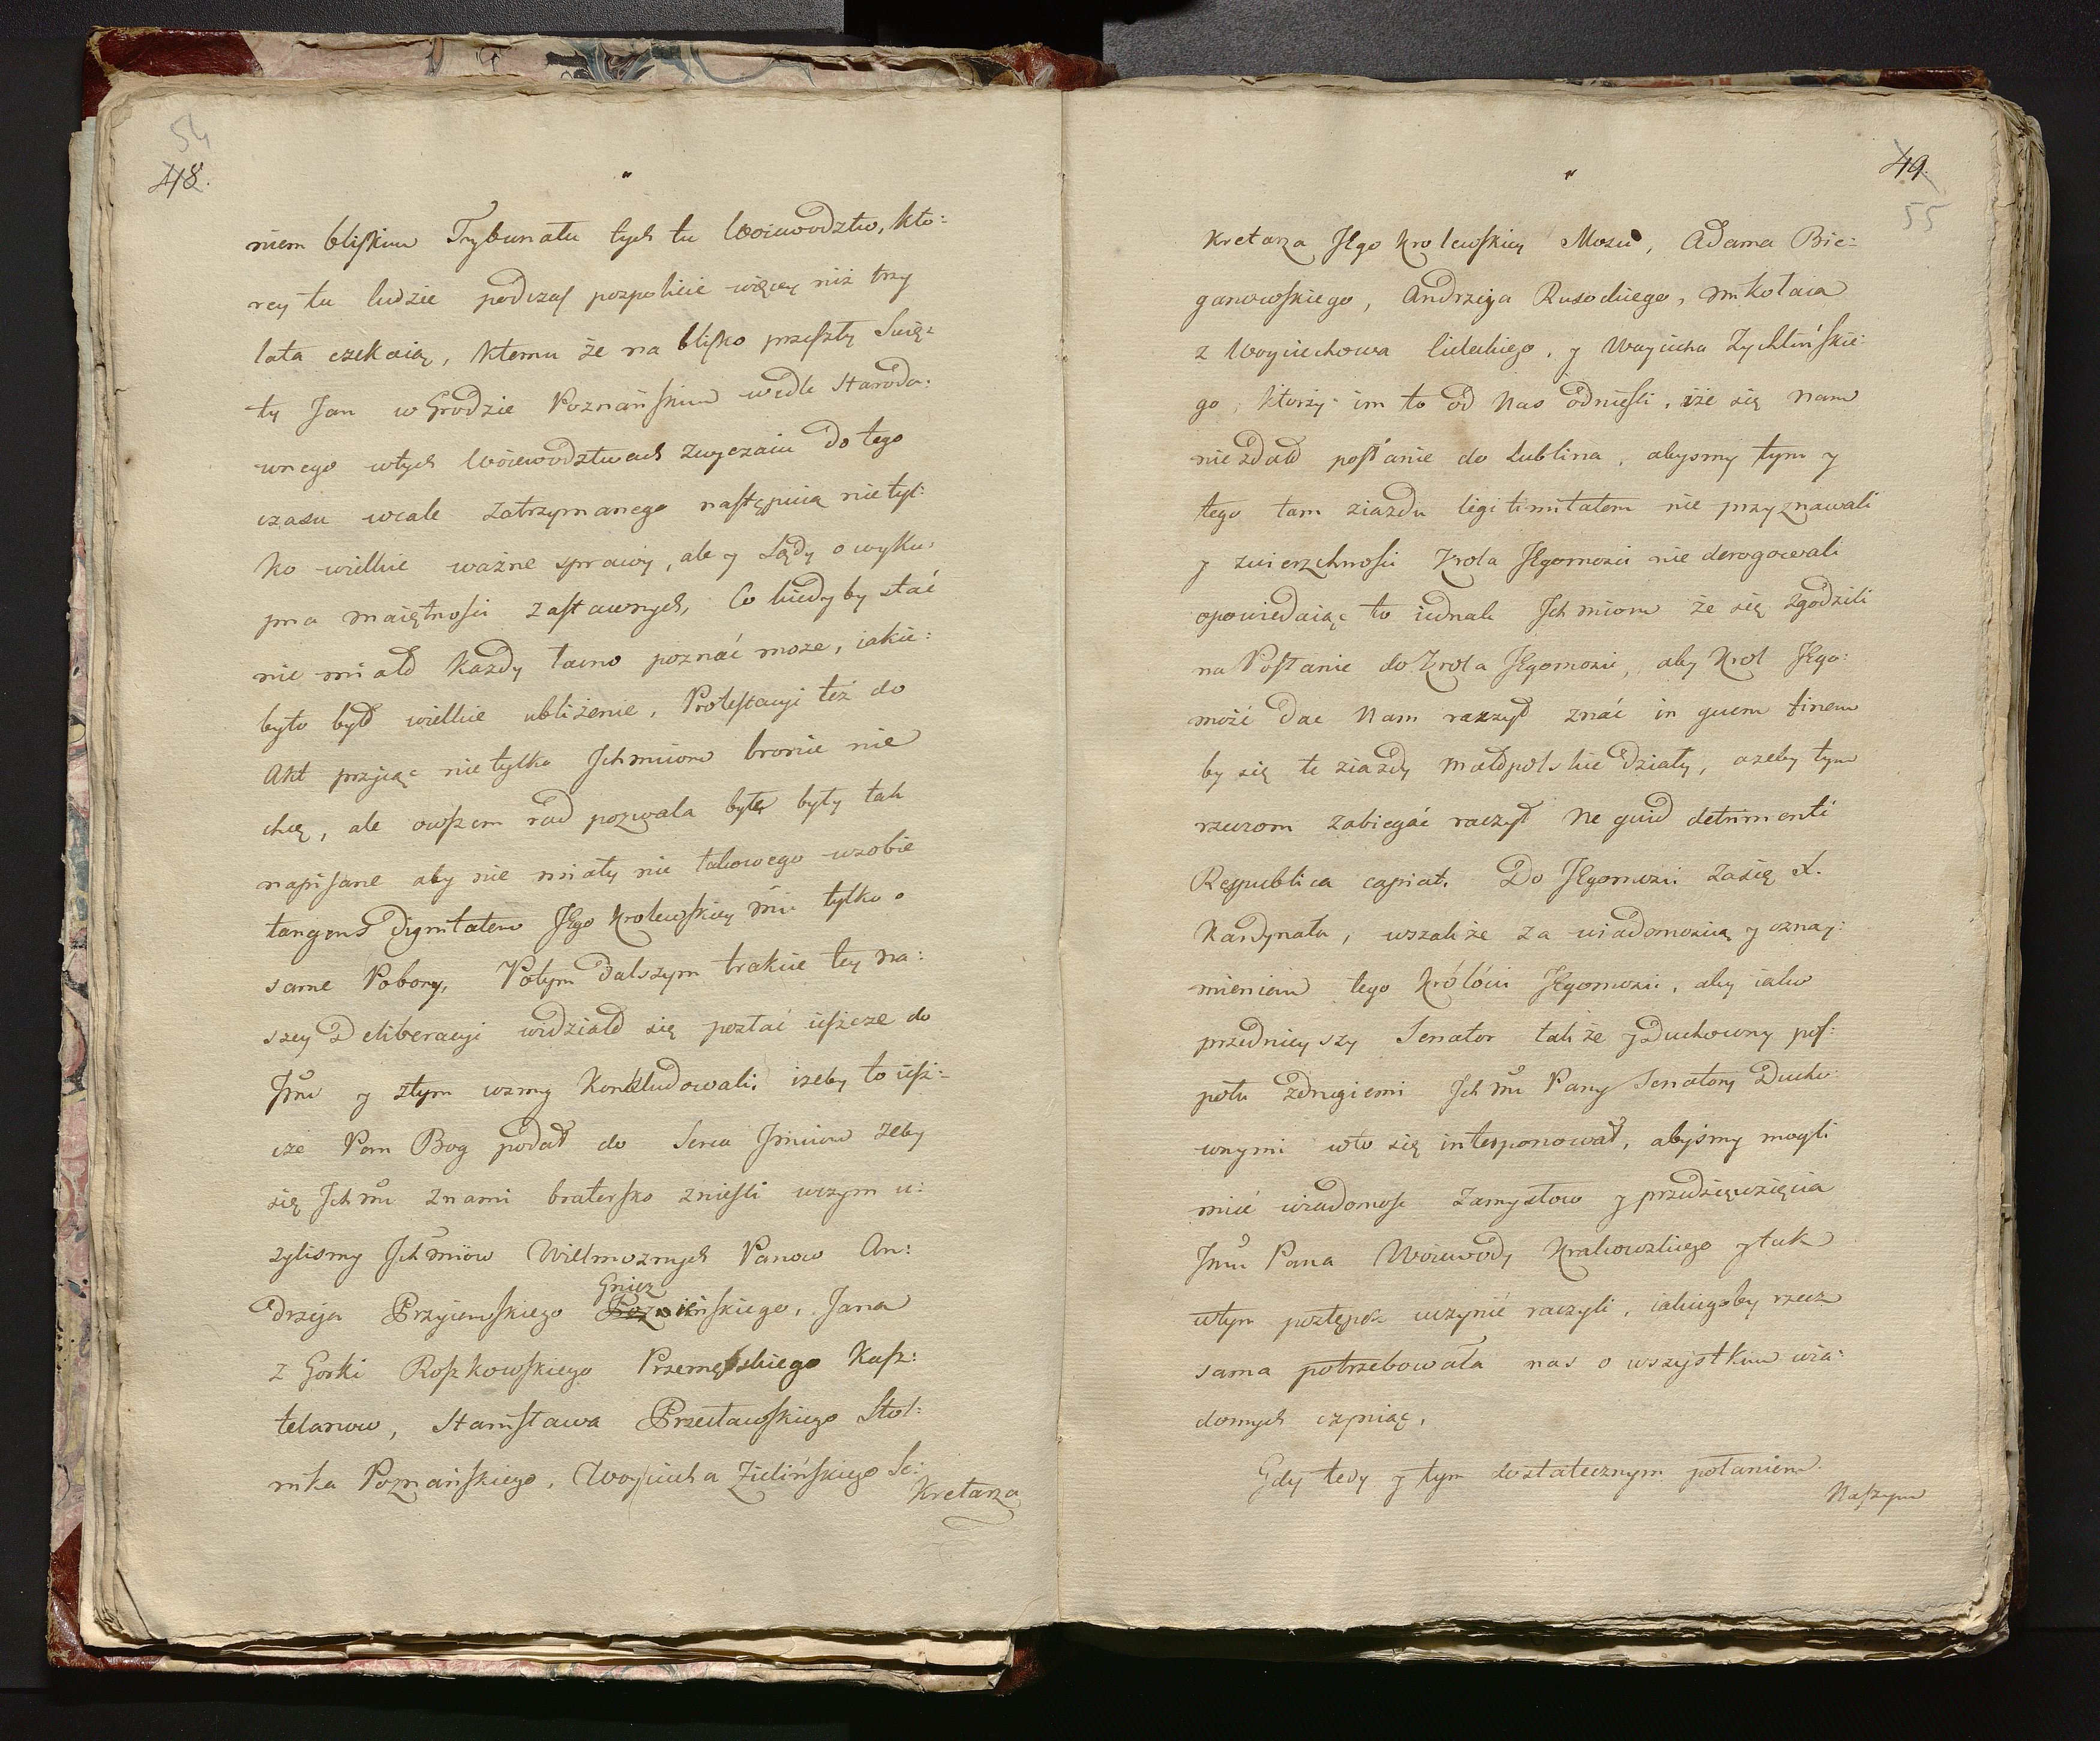 54
48.
niem bliskim Trybunału tych tu Woiewodztw, kto:
rey tu ludzie podczas pospolicie więcey niż trzy
lata czekaią, ktemu że na blisko przeszły Swię:
ty Jan w Grodzie Poznańskim wedle Staroda:
wnego wtych Woiewodztwach zwyczaiu do tego
czasu wcale zatrzymanego następuią nie tyl:
ko wielkie ważne sprawy, ale y Sądy o wyku:
pna maiętności zastawnych, Co kiedyby stać
nie miało każdy łacno poznać może, iakie:
byto było wielkie ubliżenie, Protestacyi też do
Akt przyiąc nie tylko Ichmciom bronić nie
chcę, ale owszem rad pozwala byle były tak
napisane aby nie miały nic takowego wsobie
tangens Dignitatem JEgo Krolewskiey Mci tylko o
same Pobory, Potym dalszym trakcie tey na:
szey Deliberacyi widziało się poztać ieszcze do
Jmw y ztym wzmy Konkludowali, iżeby to iesz:
cze Pan Bog podał do Serca Jmciow żeby
się Ich Mci znami bratersko znieśli uczym u:
zylismy Ich Mciow Wielmoznych Panow An:
drzeja Przyiemskiego Gniez
Poznieńskiego, Jana
z Gorki Roszkowskiego Przemęskiego Kasz:
telanow, Stanisława Przecławskiego Stol:
nika Poznańskiego, Woyciecha Zielińskiego Se:
Kretarza
49.
55
Kretarza JEgo Krolewskiey Mości, Adama Bie:
ganowskiego, Andrzeja Rusockiego, Mikołaia
z Woyciechowa Cieleckiego, y Woyciecha Zychlińskie:
go, ktorzy im to od Nas odnieśli, iże się nam
nie zdało posłanie do Lublina, abysmy tym y
tego tam ziazdu legitimitatem nie przyznawali
y zwierzchności Krola JEgomości nie derogowali
opowiedaiąc to iednak Ichmiom że się zgodzili
na Posłanie do Krola JEgomości, aby Krol JEgo:
mość dac Nam raczył znać in quem finem
by się te ziazdy Małopolskie działy, azeby tym
rzeczom zabiegać raczył Ne quid detrimenti
Respublica capiat. Do JEgomości zasię X.
Kardynała, wszakże za wiadomością y oznay:
mieniem tego Królowi JEgomości, aby iako
przednieyszy Senator także y Duchowny pos:
połu zdrugiemi Ich Mci Pany Senatory Ducho:
wnymi wto się interponował, abyśmy mogli
mieć wiadomość zamysłow y przedsięwzięcia
Jmci Pana Woiewody Krakowskiego y tak
wtym postępek uczynić raczyli, iakiegoby rzecz
sama potrzebowała nas o wszystkim wia:
domych czyniąc.
Gdy tedy y tym dostatecznym posłaniem
Naszym